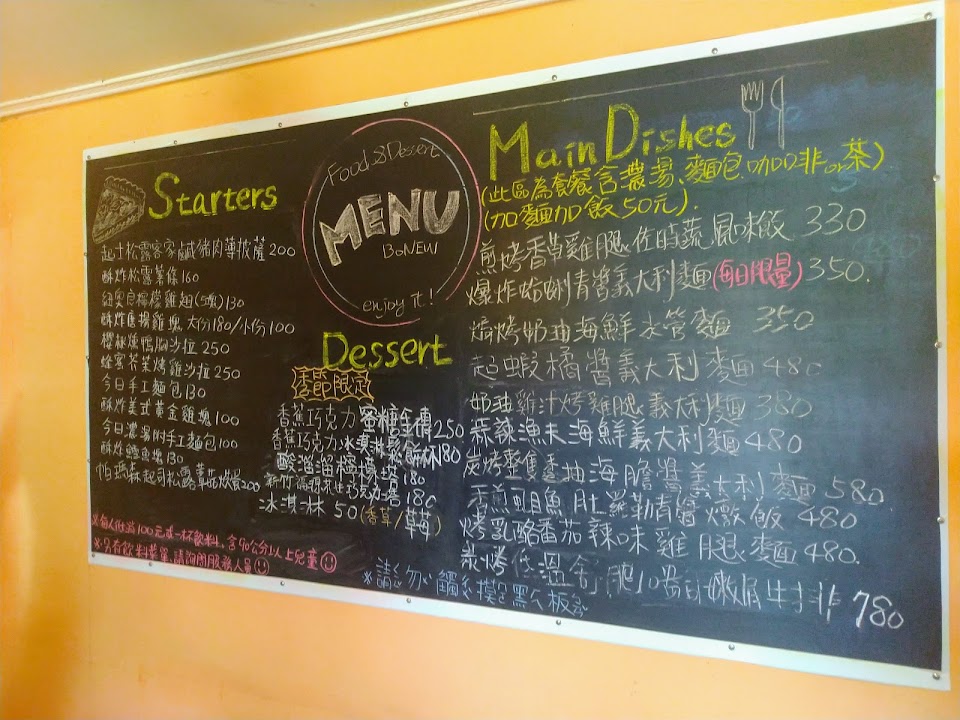 Starters
起士松露客家鹹豬肉薄披薩 200
酥炸松露薯條 160
紐奧良檸檬雞翅(5隻) 130
酥炸唐揚雞塊 大份180/小份100
櫻桃燻鴨胸沙拉 250
蜂蜜芥茉烤雞沙拉 250
今日手工麵包 130
酥炸美式黃金雞塊 100
今日濃湯附手工麵包 100
酥炸鱈魚塊 130
帕瑪森起司松露草菇燉飯 200
※每人低消100元或一杯飲料,含90公分以上兒童
※另有飲料菜單,請詢問服務人員
Food & Dessert
MENU
BoNEW
enjoy it!
Dessert
季節限定
香蕉巧克力蜜糖土磚 250
香蕉巧克力冰淇淋鬆餅 180
酸溜溜檸檬塔 180
新竹福源花生巧克力塔 180
冰淇淋 50 (香草/草莓)
Main Dishes
(此區為套餐含濃湯、麵包、咖啡or茶)
(加麵加飯50元).
煎烤香草雞腿佐時蔬風味飯 330
爆炸蛤蜊青醬義大利麵(每日限量) 350.
焗烤奶油海鮮水管麵 350
起蝦橘醬義大利麵 480
奶油雞汁烤雞腿義大利麵 380
蒜辣漁夫海鮮義大利麵 480
炭烤雙隻透抽海膽醬義大利麵 580
香煎虱目魚肚羅勒青醬燉飯 480
烤乳酪番茄辣味雞腿麵 480.
炭烤低溫舒肥10盎司嫩肩牛排 780
※請勿觸摸黑板